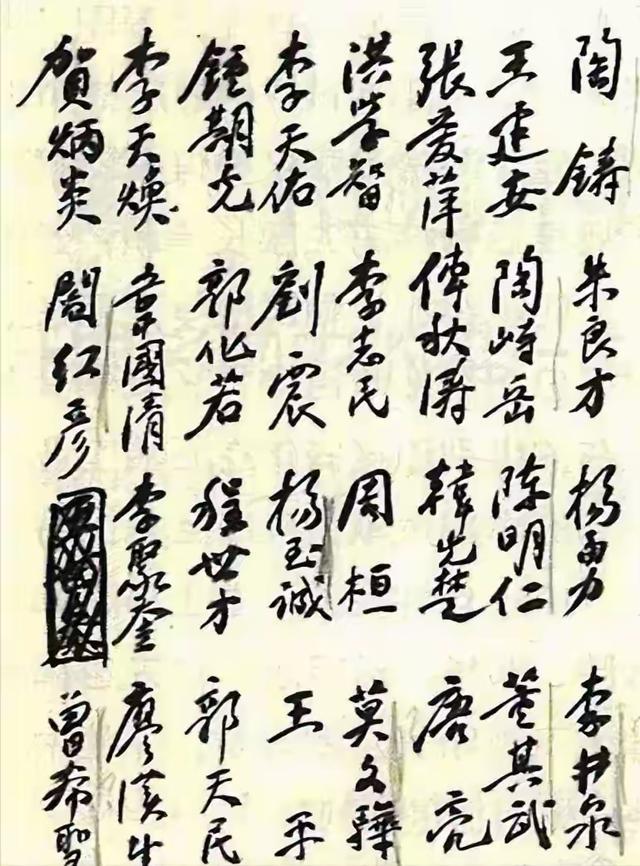 陶鑄 朱良才 杨力 李井泉
王建安 陶峙岳 陈明仁 董其武
張爱萍 傅秋涛 韓先楚 唐亮
洪学智 李志民 周桓 莫文驊
李天佑 劉震 杨至誠 王平
鍾期光 郭化若 程世才 郭天民
李天焕 韋國清 李聚奎 廖漢生
賀炳炎 閻红彦 曾希聖